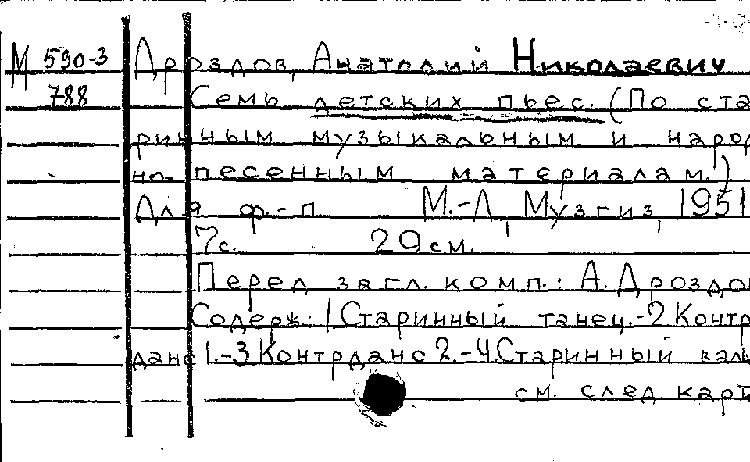 М 590-3 Дроздов, Анатолий Николаевич
788 Семь детских пьес. (По ста
ринным музыкальным и народ
но-песенным материалам.)
Для ф.-п. М.-Л. Музгиз, 1951
7с. 29см.
Перед загл. комп.: А. Дроздо
Содерж: 1.Старинный танец.-2.Контр
данс 1.-3.Контрданс 2.-4.Старинный валь
см. след карт